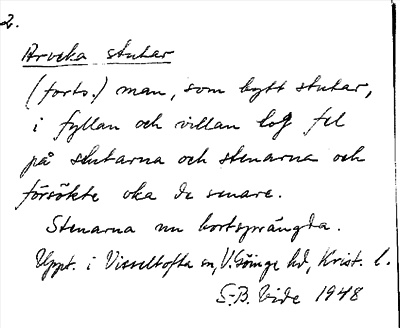 2.
Arvika stutar
(forts.) man, som bytt stutar,
i fyllan och villan tog fel
på stutarna och stenarna och
försökte oka de senare.
Stenarna nu bortsprängda.
Uppt. i Visseltofta sn, V. Göinge hd, Krist. l.
S-B. Vide 1948